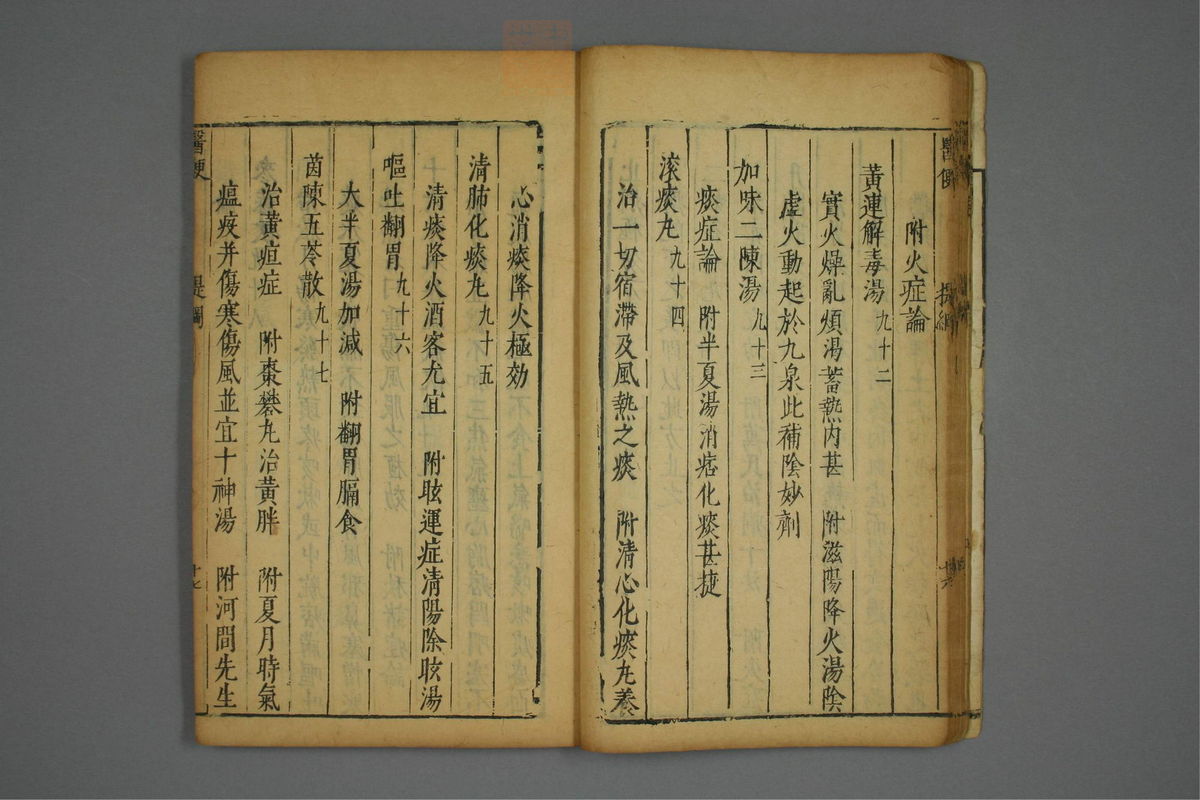 醫便
提綱
十六
附火症論
黃連解毒湯九十二
實火燥亂煩渴蓄熱內甚 附滋陽降火湯陰
虛火動起於九泉此補陰妙劑
加味二陳湯九十三
痰症論 附半夏湯消痞化痰甚捷
滚痰丸九十四
治一切宿滯及風熱之痰 附清心化痰丸養
心消痰降火極効
清肺化痰丸九十五
清痰降火酒客尤宜 附眩運症清陽除眩湯
嘔吐翻胃九十六
大半夏湯加減 附翻胃膈食
茵陳五苓散九十七
治黃疸症 附棗礬丸治黃胖 附夏月時氣
瘟疫并傷寒傷風並宜十神湯 附河間先生
醫便
提綱
十七